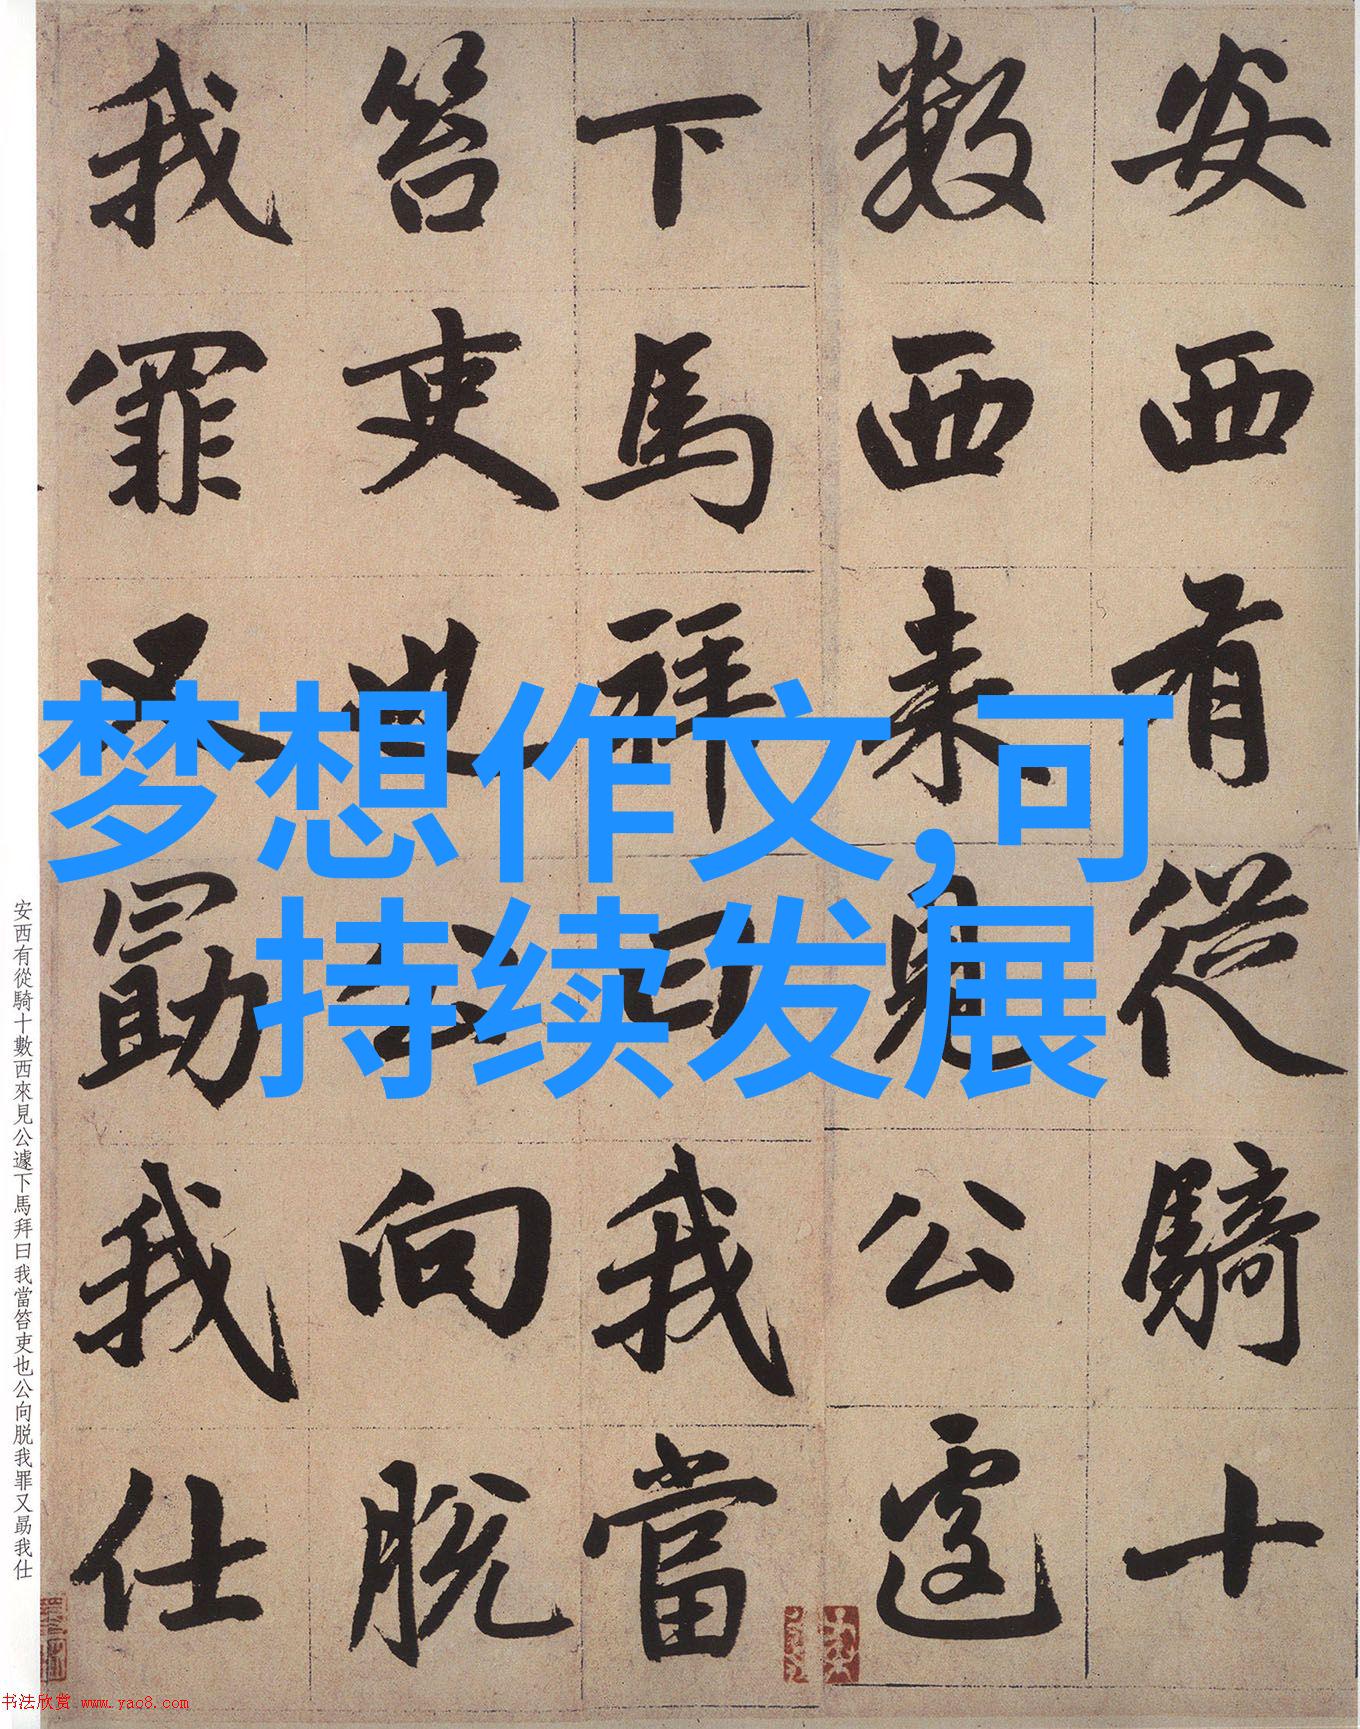 安西有從騎十
數西来見公遽
下馬拜曰我當
笞吏也公向脱
我罪又勗我仕
梦想作文,可
持续发展
安西有從騎十數西來見公遽下馬拜曰我當笞吏也公向脱我罪又勗我仕
书法欣赏 www.yac8.com